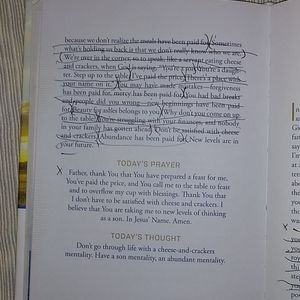 because we don't realize the meals have been paid for. Sometimes
what's holding us back is that we don't really know who we are.
We're over in the corner, so to speak, like a servant eating cheese
and crackers, when God is saying, "You're a son. You're a daugh-
ter. Step up to the table. I've paid the price. There's a place with
your name on it." You may have made mistakes—forgiveness
has been paid for, mercy has been paid for. You had bad breaks
and people did you wrong—new beginnings have been paid
for, beauty for ashes belongs to you. Why don't you come on up
to the table? You're struggling with your finances, and nobody
in your family has gotten ahead. Don't be satisfied with cheese
and crackers. Abundance has been paid for. New levels are in
your future.
TODAY'S PRAYER
Father, thank You that You have prepared a feast for me.
You've paid the price, and You call me to the table to feast
and to overflow my cup with blessings. Thank You that
I don't have to be satisfied with cheese and crackers. I
believe that You are taking me to new levels of thinking
as a son. In Jesus' Name, Amen.
TODAY'S THOUGHT
Don't go through life with a cheese-and-crackers
mentality. Have a son mentality, an abundant mentality.